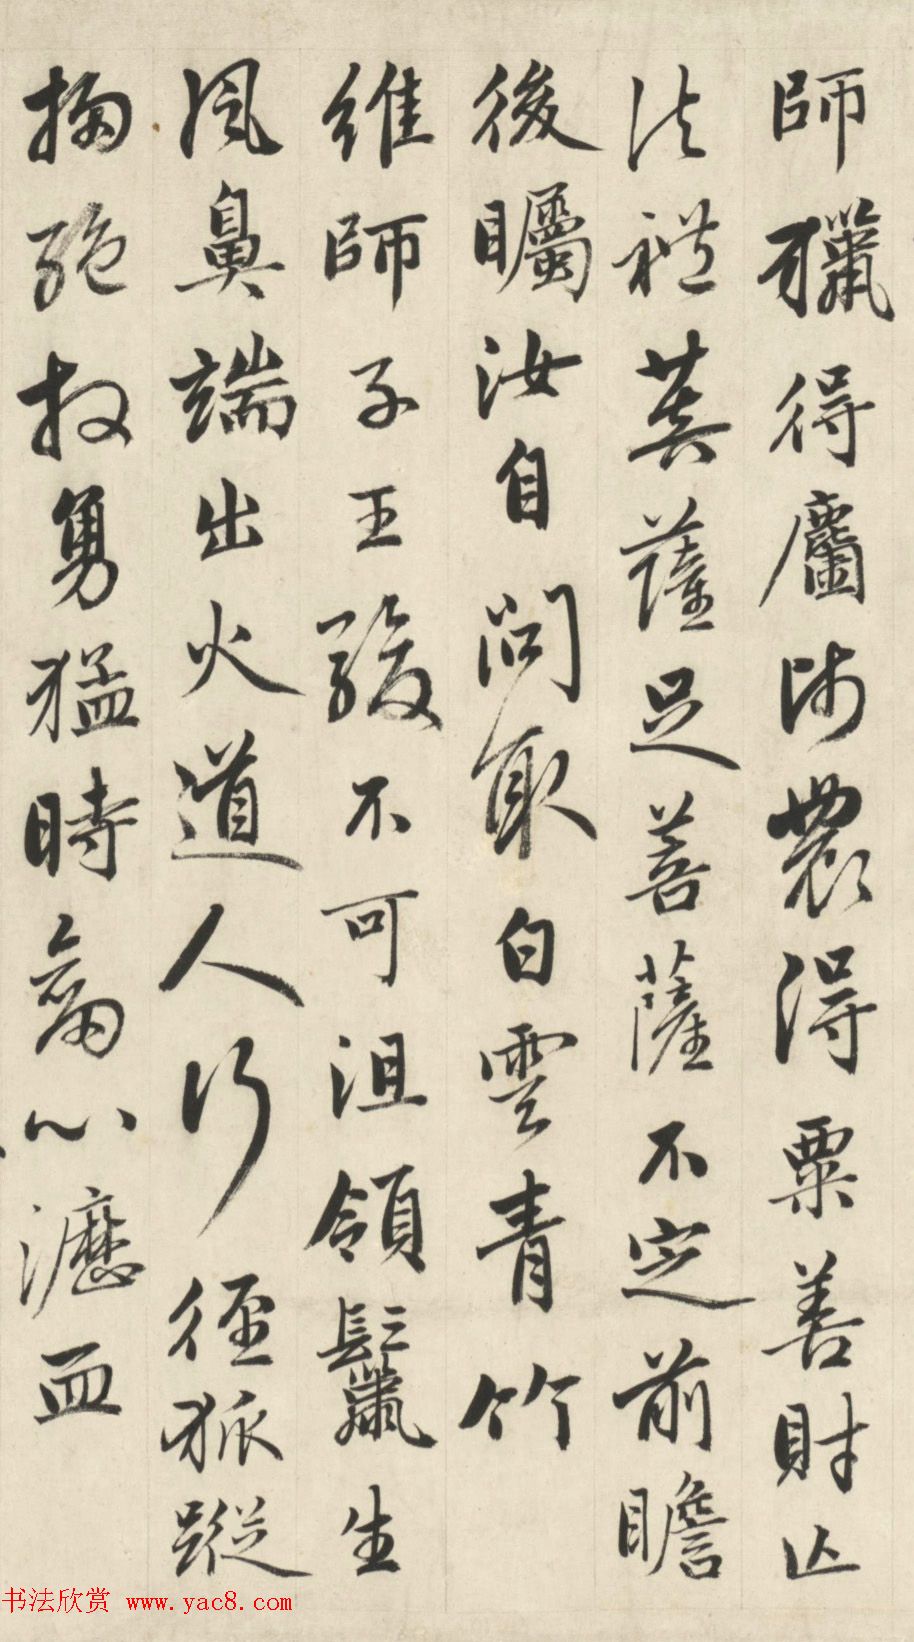 師獵得麕師農得粟善財亾
法禮薩足菩薩不定前瞻
後矚汝自問取白雲青竹
維師子王駿不可沮領鬣生
風鼻端出火道人行徑狐蹤
掃絕勇猛時心瀝血
书法欣赏 www.yac8.com